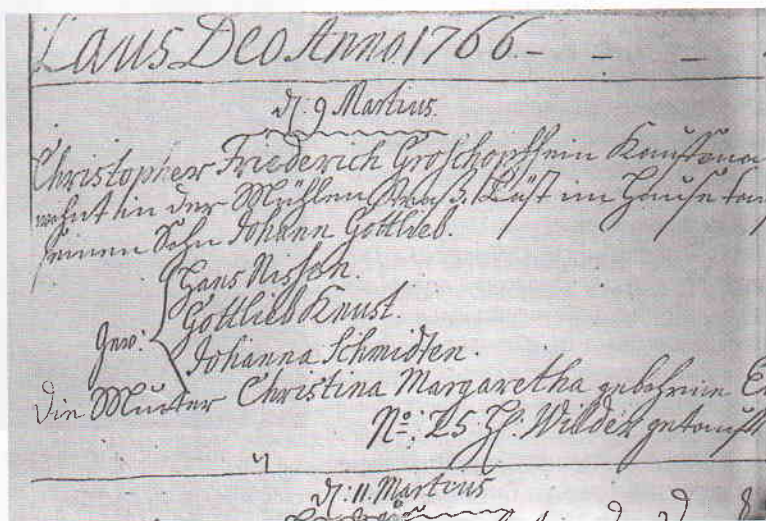 Laus Deo Anno 1766 - - -
d. 9 Martius.
Christopher Friederich Groschopf ein Kauff
wohnt in der Mühlen Straß. Läst im Hause
seinen Sohn Johann Gottlieb.
Hans Nissen.
Gottlieb Knust.
Gev:
Johanna Schmidten.
Die Mutter Christina Margaretha gebohrne
No: 25 H: Wilder getauft
d. 11. Martius